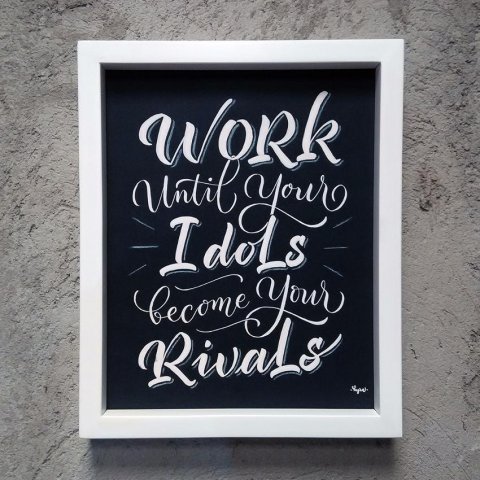 WORK
Until Your
IdoLs
become Your
RivaLs